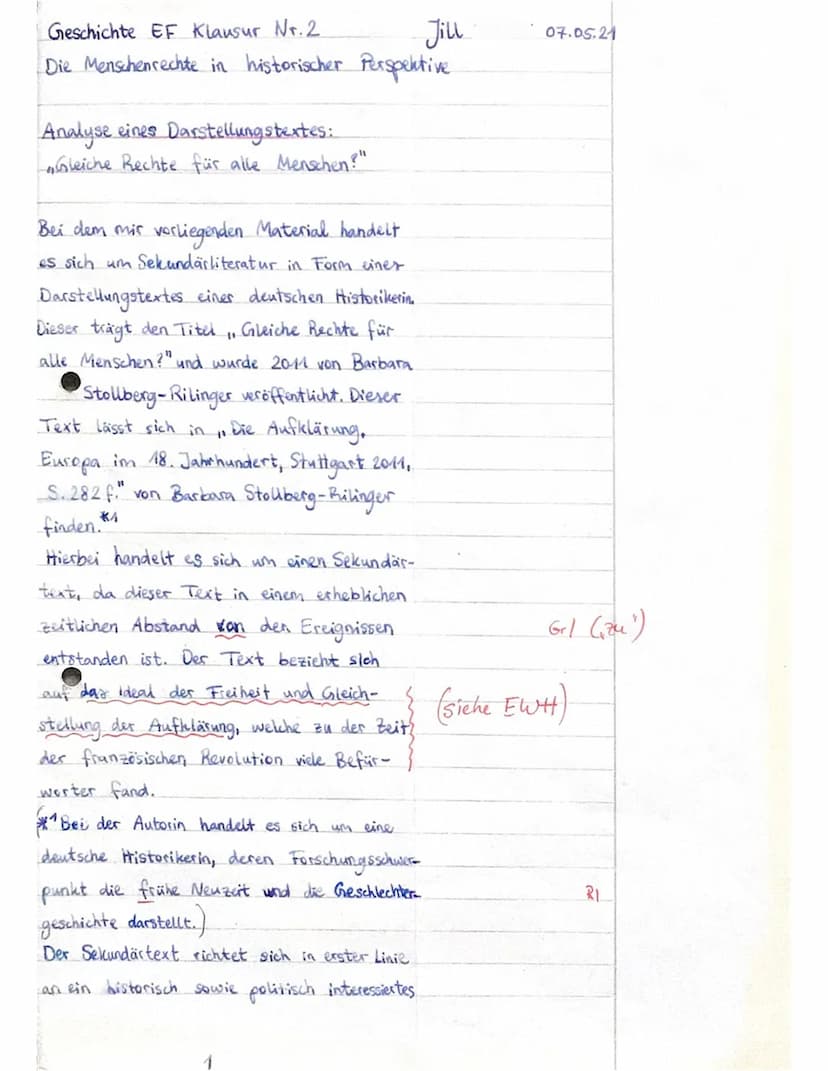 Geschichte EF Klausur Nr. 2 Jill 07.05.21
Die Menschenrechte in historischer Perspektive
Analyse eines Darstellungstextes:
„Gleiche Rechte für alle Menschen?"
Bei dem mir vorliegenden Material handelt
es sich um Sekundärliteratur in Form einer
Darstellungstextes einer deutschen Historikerin.
Dieser trägt den Titel „Gleiche Rechte für
alle Menschen?" und wurde 2011 von Barbara
Stollberg-Rilinger veröffentlicht. Dieser
Text lässt sich in „Die Aufklärung,
Europa im 18. Jahrhundert, Stuttgart 2011,
S. 282 f." von Barbara Stollberg-Rilinger
finden.*1
Hierbei handelt es sich um einen Sekundär-
text, da dieser Text in einem erheblichen
zeitlichen Abstand von den Ereignissen Gr/ („zu")
entstanden ist. Der Text bezieht sich
auf das Ideal der Freiheit und Gleich- (siehe EWH)
stellung der Aufklärung, welche zu der Zeit
der französischen Revolution viele Befür-
worter fand.
(*1 Bei der Autorin handelt es sich um eine
deutsche Historikerin, deren Forschungsschwer-
punkt die frühe Neuzeit und die Geschlechter- R/
geschichte darstellt.)
Der Sekundärtext richtet sich in erster Linie
an ein historisch sowie politisch interessiertes
1